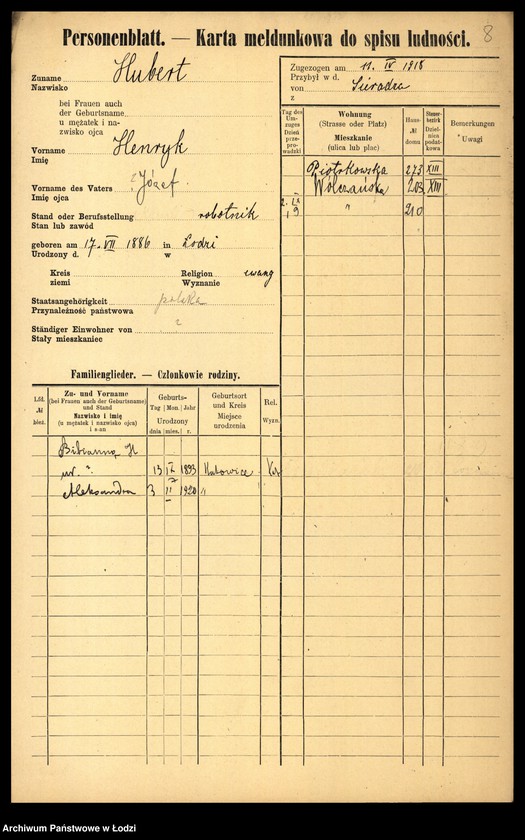 Personenblatt. — Karta meldunkowa do spisu ludności.
8
Zuname Hubert
Nazwisko
bei Frauen auch
der Geburtsname
u mężatek i na-
zwisko ojca
Vorname Henryk
Imię
Vorname des Vaters ? Józef
Imię ojca
Stand oder Berufsstellung robotnik
Stan lub zawód
geboren am 17. VII 1886 in Łodzi
Urodzony d. w
Kreis Religion ewang
ziemi Wyznanie
Staatsangehörigkeit polska
Przynależność państwowa
Ständiger Einwohner von
Stały mieszkaniec
Zugezogen am 11. IV 1918
Przybył w d.
von Sieradza
z
Tag des Um-zuges Dzień prze-prowadzki
Wohnung (Strasse oder Platz) Mieszkanie (ulica lub plac)
Haus-№ domu
Steuer-bezirk Dziel-nica podat-kowa
Bemerkungen Uwagi
Piotrkowska 273 XIII
Wólczańska 203 XIII
2. IX 19 " 210
Familienglieder. — Członkowie rodziny.
Lfd. № bież.
Zu- und Vorname (bei Frauen auch der Geburtsname) und Stand Nazwisko i imię (u mężatek i nazwisko ojca) i s-an
Geburts- Tag Mon. Jahr Urodzony dnia mies. r.
Geburtsort und Kreis Miejsce urodzenia
Rel. Wyzn.
Bibianna H
ur. ". 13 1893 Katowice Kat
Aleksandra 3 II 1920 "
Archiwum Państwowe w Łodzi